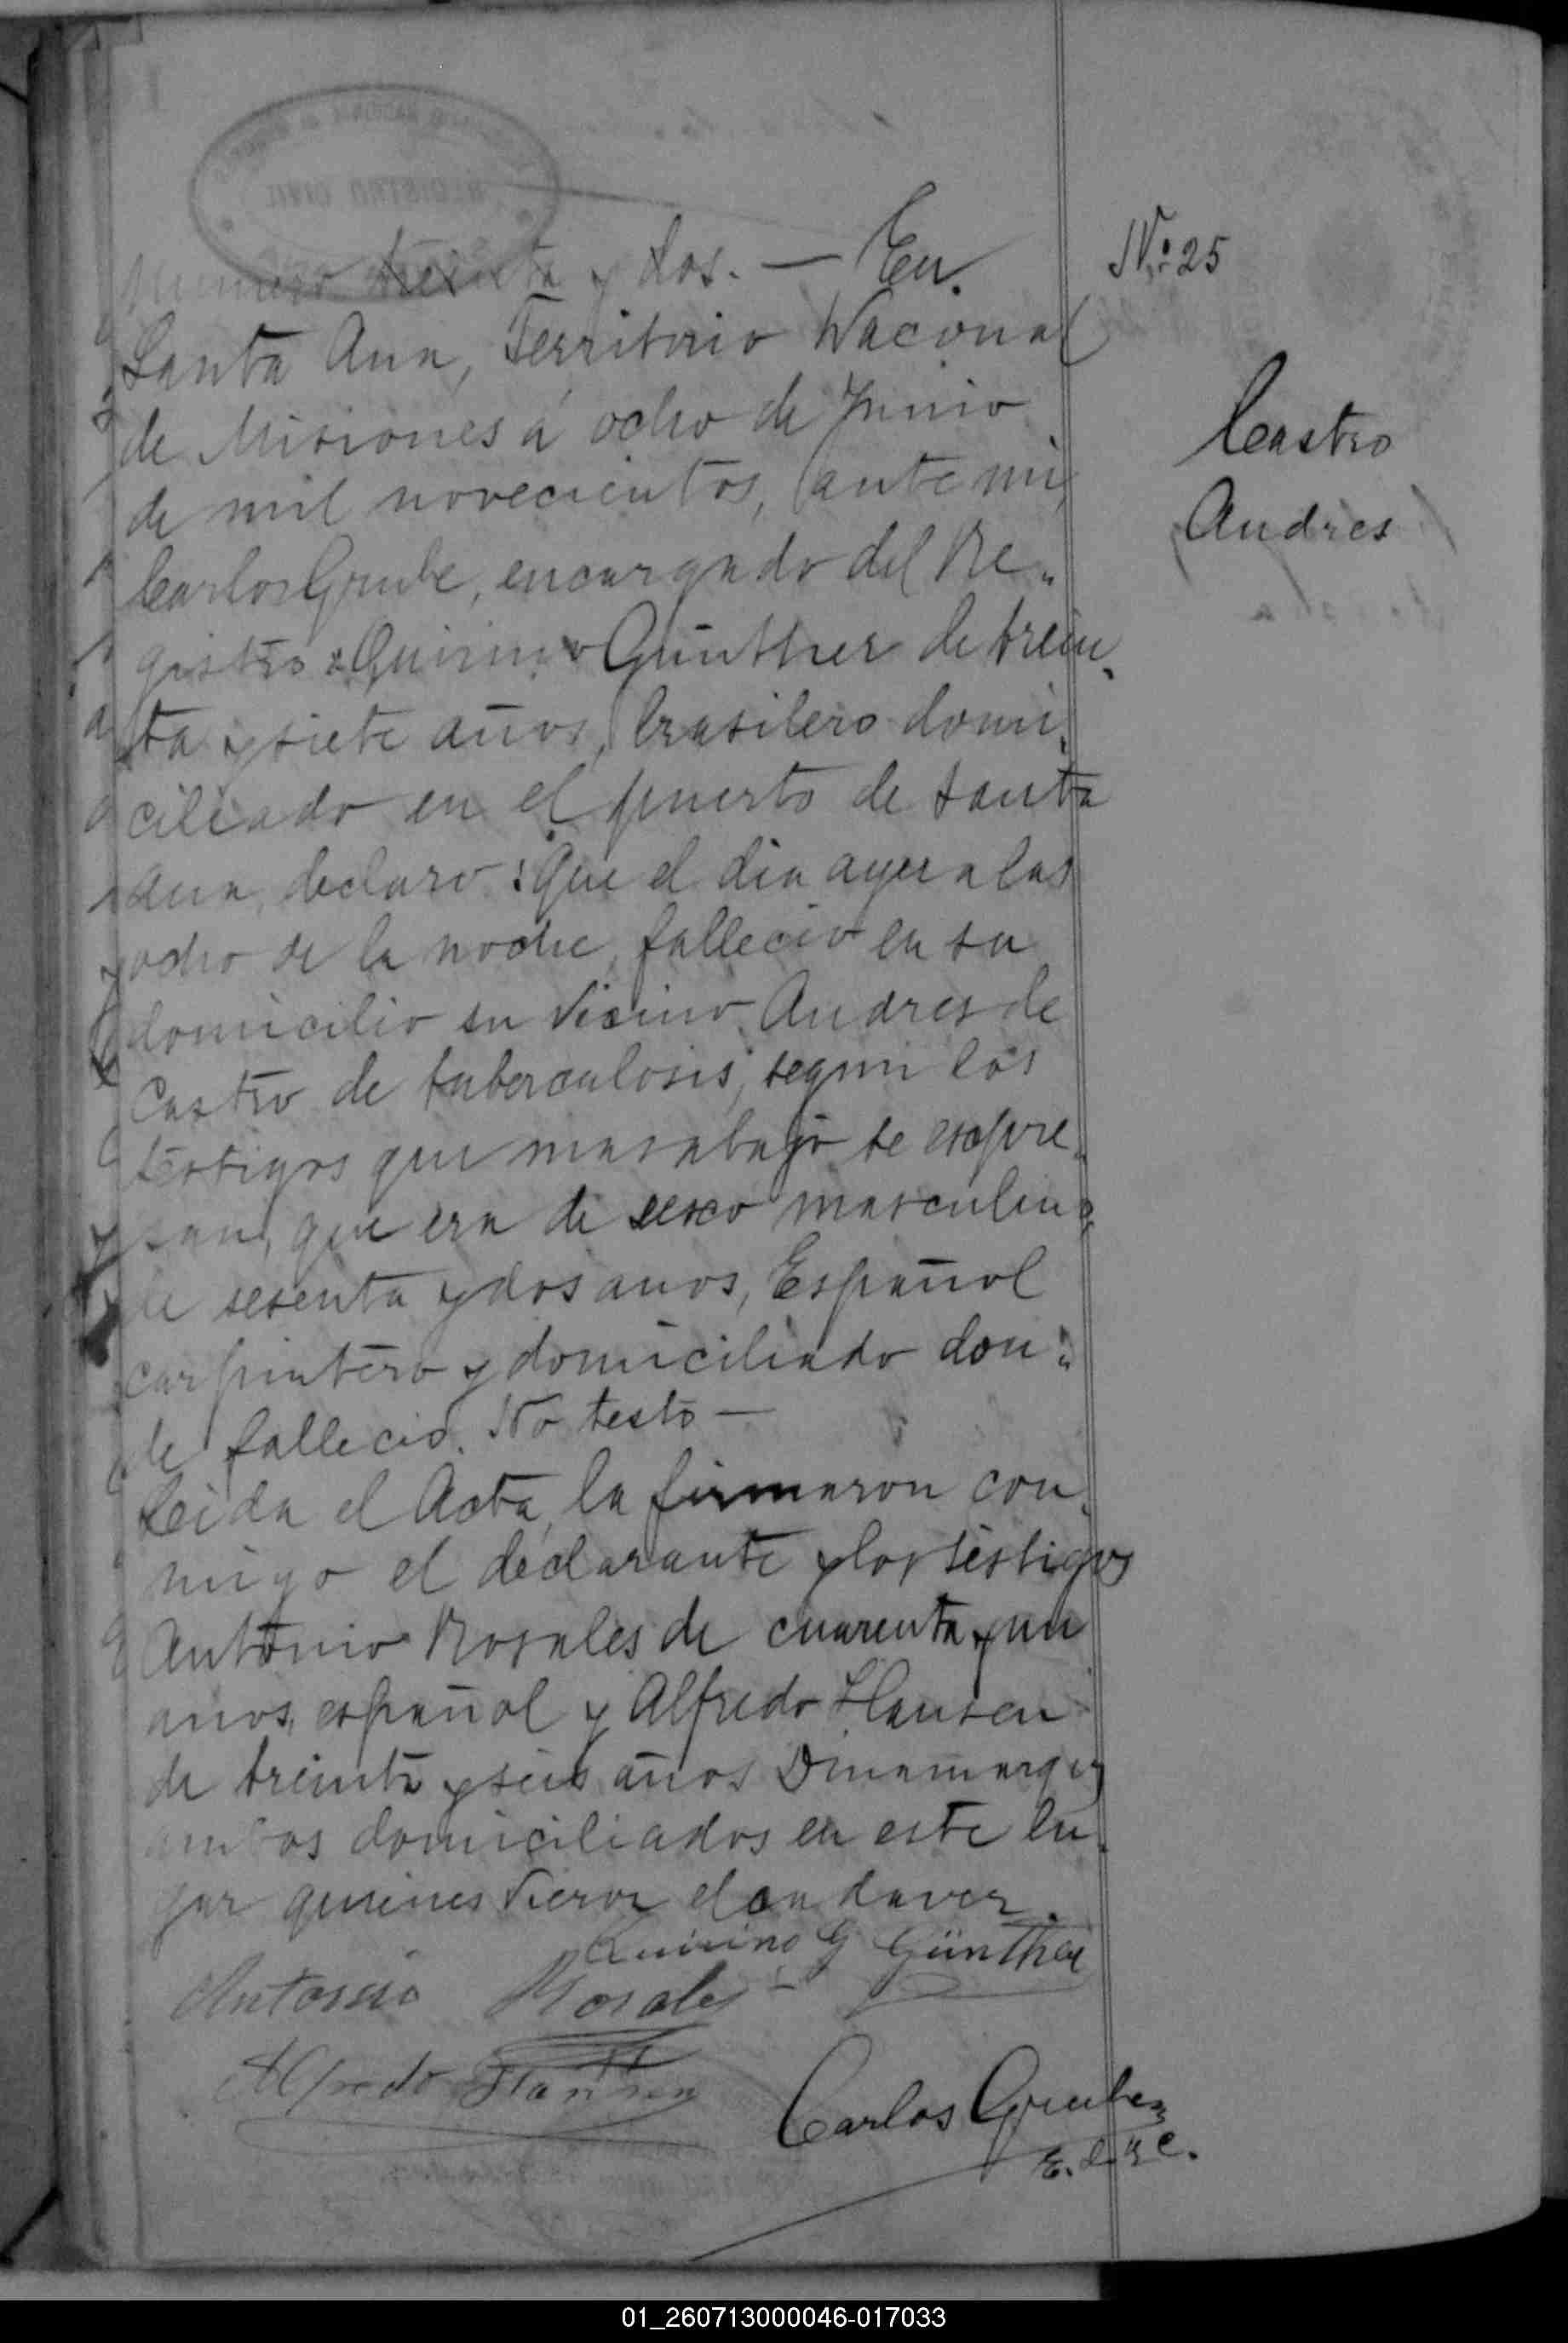 REGISTRO CIVIL
Numero treinta y dos. — En
Santa Ana, Territorio Nacional
de Misiones á ocho de Junio
de mil novecientos, ante mi,
Carlos Grube, encargado del Re„
gistro Quirino Günther de trein„
ta y siete años, brasilero domi„
ciliado en el puerto de Santa
Ana, declaro: Que el dia ayer a las
ocho de la noche, fallecio en su
domicilio su vicino Andres de
Castro de tuberculosis, segun los
testigos que mas abajo se expre„
san, que era de sexo masculino,
de sesenta y dos anos, Español
carpintero y domiciliado don„
de fallecio. No testo —
Leida el Acta, la firmaron con„
migo el declarante y los testigos
Antonio Rosales de cuarenta y un
anos, español y Alfredo Hansen
de treinta y seis años Dinamarques
ambos domiciliados en este lu„
gar quienes vieron el cadaver.
Quirino G Günther
Antonio Rosales
Alfredo Hansen
Carlos Grube
E. d. R. C.
Nº 25
Castro
Andres
01_260713000046-017033